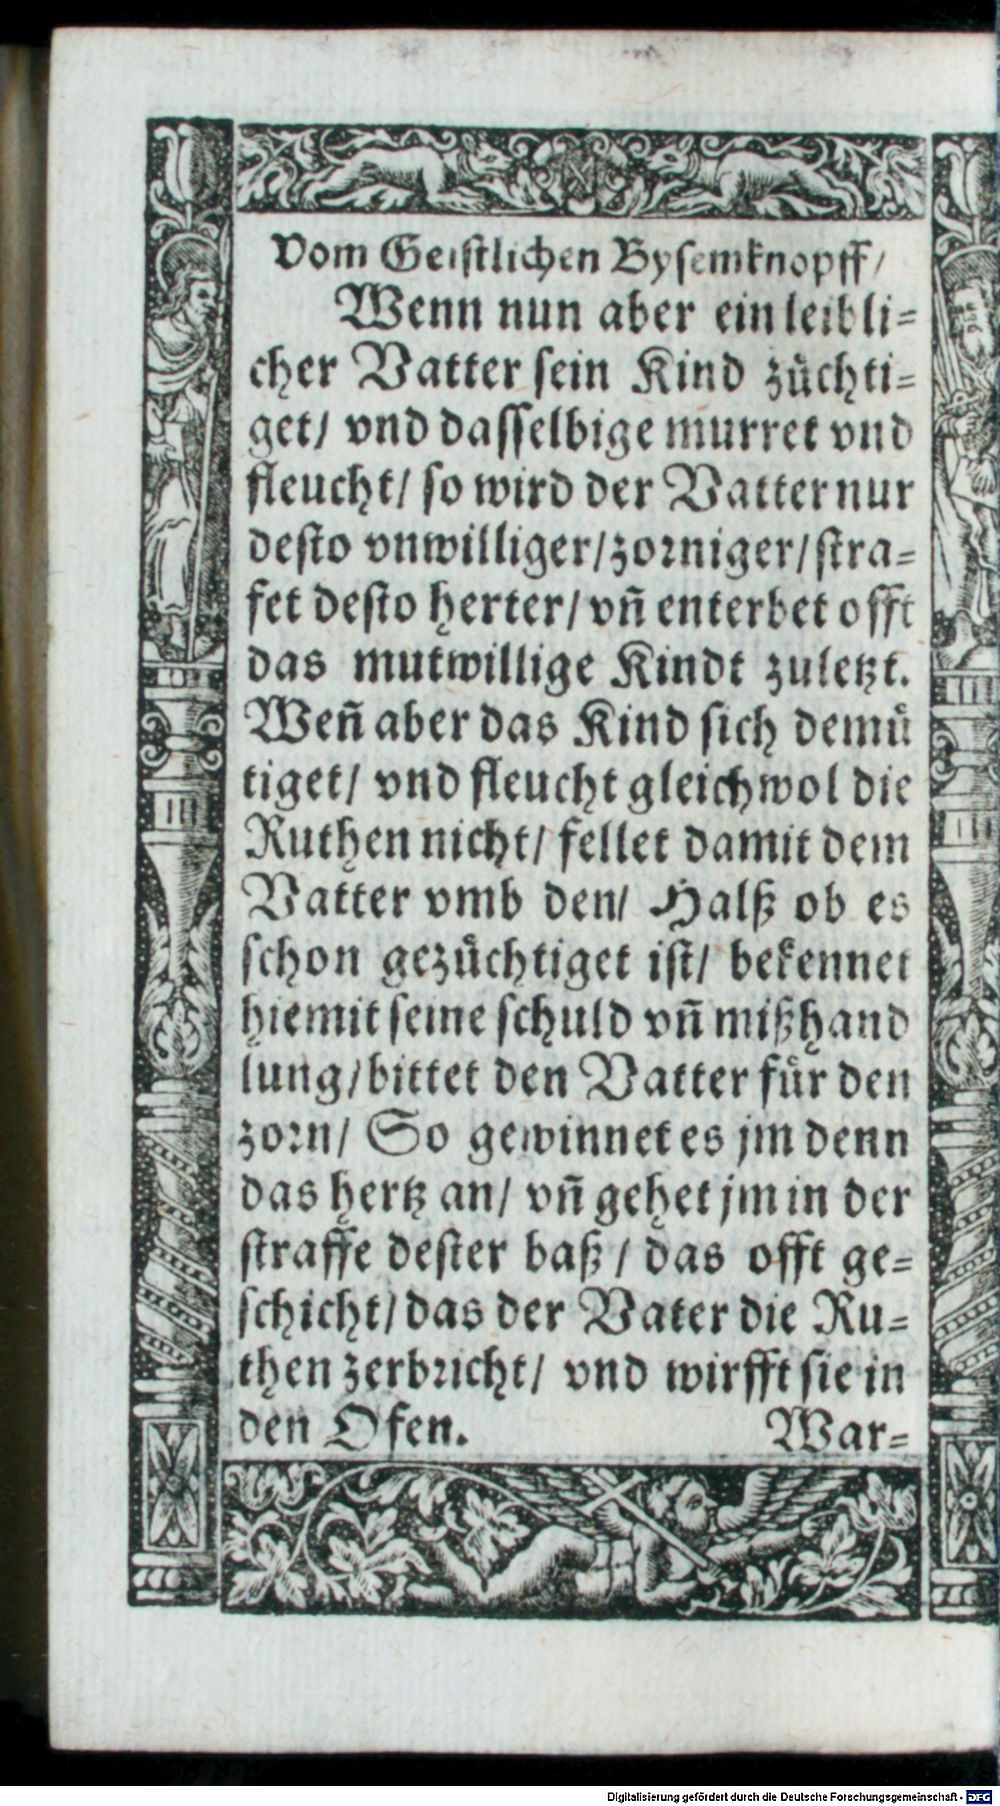 Vom Geistlichen Bysemknopff/
Wenn nun aber ein leibli=
cher Vatter sein Kind zuͤchti=
get/ vnd dasselbige murret vnd
fleucht/ so wird der Vatter nur
desto vnwilliger/zorniger/stra=
fet desto herter/ vñ enterbet offt
das mutwillige Kindt zuletzt.
Weñ aber das Kind sich demuͤ
tiget/ vnd fleucht gleichwol die
Ruthen nicht/ fellet damit dem
Vatter vmb den/ Halß ob es
schon gezuͤchtiget ist/ bekennet
hiemit seine schuld vñ mißhand
lung/bittet den Vatter fuͤr den
zorn/ So gewinnet es jm denn
das hertz an/ vñ gehet jm in der
straffe dester baß/ das offt ge=
schicht/das der Vater die Ru=
then zerbricht/ vnd wirfft sie in
den Ofen. War=
Digitalisierung gefördert durch die Deutsche Forschungsgemeinschaft - DFG